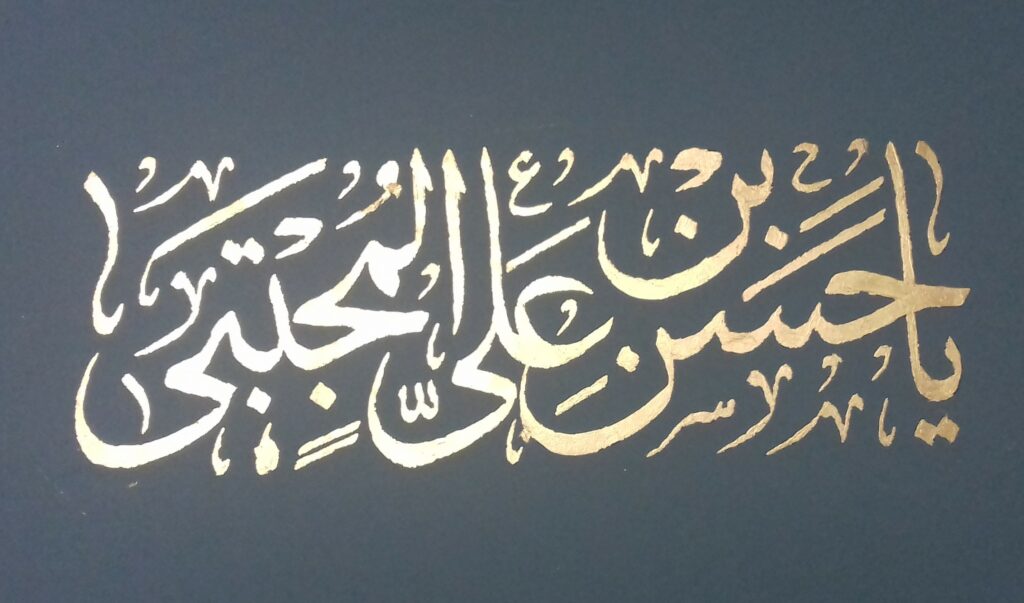 يا حسن بن علي المجتبى